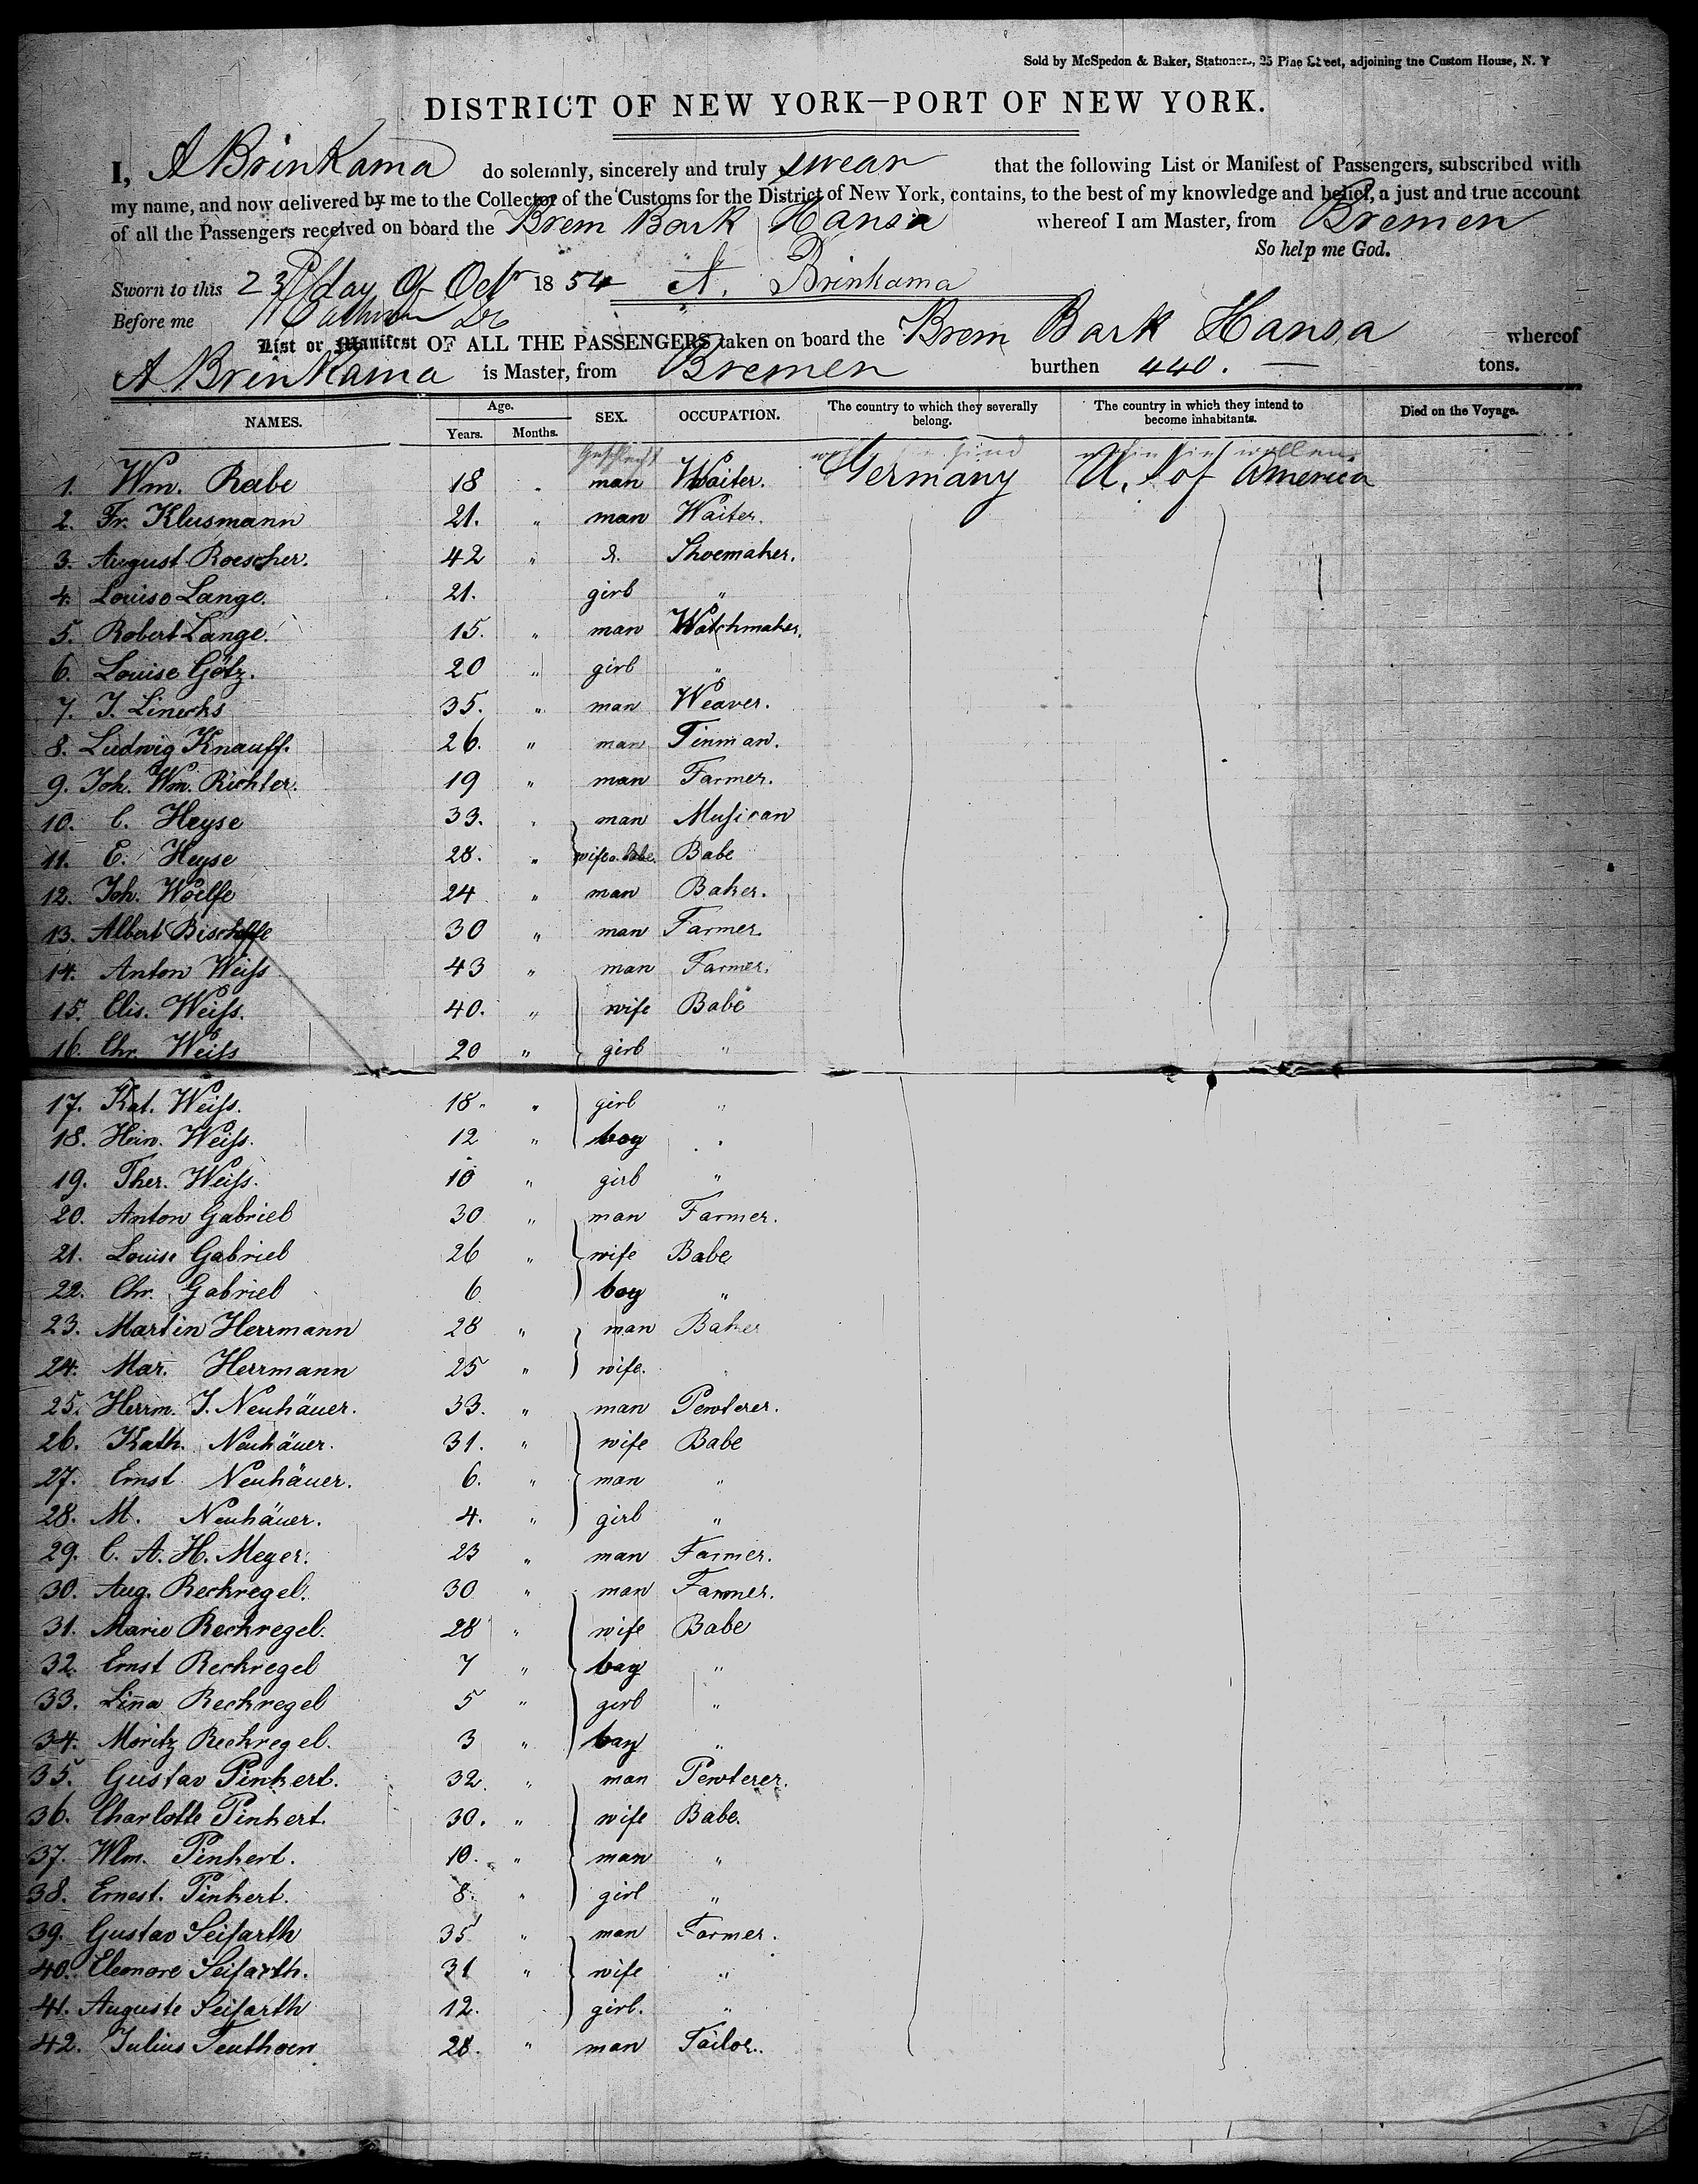 Sold by McSpedon & Baker, Stationers, 25 Pine Street, adjoining the Custom House, N. Y
DISTRICT OF NEW YORK—PORT OF NEW YORK.
I, A Brinkama do solemnly, sincerely and truly swear that the following List or Manifest of Passengers, subscribed with
my name, and now delivered by me to the Collector of the Customs for the District of New York, contains, to the best of my knowledge and belief, a just and true account
of all the Passengers received on board the Brem Bark Hansa whereof I am Master, from Bremen
So help me God.
Sworn to this 23d day of Octr 1854 A. Brinkama
Before me
List or Manifest OF ALL THE PASSENGERS taken on board the Brem Bark Hansa whereof
A Brinkama is Master, from Bremen burthen 440. — tons.
NAMES. Age. Years. Months. SEX. OCCUPATION. The country to which they severally belong. The country in which they intend to become inhabitants. Died on the Voyage.
Geschlecht sind wollen.
1. Wm. Rabe 18 " man Waiter. Germany U. S of America
2. Fr. Klusmann 21. " man Waiter.
3. August Roescher. 42 " d. Shoemaker.
4. Louise Lange. 21. girl "
5. Robert Lange. 15. " man Watchmaker.
6. Louise Götz. 20 " girl "
7. J. Linecks 35. " man Weaver.
8. Ludwig Knauff. 26. " man Tinman.
9. Joh. Wm. Richter. 19 " man Farmer.
10. C. Heyse 33. " man Musican
11. E. Heyse 28. " wife a. babe. Babe
12. Joh. Woelfe 24 " man Baker.
13. Albert Bischoffe 30 " man Farmer.
14. Anton Weiss 43 " man Farmer.
15. Elis. Weiss. 40. " wife Babe
16. Chr. Weiss 20 " girl "
17. Kat. Weiss. 18. " girl "
18. Hein. Weiss. 12 " boy "
19. Ther. Weiss. 10 " girl "
20. Anton Gabriel 30 " man Farmer.
21. Louise Gabriel 26 " wife Babe
22. Chr. Gabriel 6 boy "
23. Martin Herrmann 28 " man Baker
24. Mar. Herrmann 25 " wife.
25. Herrm. J. Neuhäuer. 33. " man Pewterer.
26. Kath. Neuhäuer. 31. " wife Babe
27. Ernst Neuhäuer. 6. " man "
28. M. Neuhäuer. 4. " girl "
29. C. A. H. Meyer. 23 " man Farmer.
30. Aug. Reckregel. 30 " man Farmer.
31. Marie Reckregel. 28 " wife Babe
32. Ernst Reckregel 7 " boy "
33. Lina Reckregel 5 " girl "
34. Moritz Reckregel. 3 " boy "
35. Gustav Pinkert. 32. " man Pewterer.
36. Charlotte Pinkert. 30. " wife Babe.
37. Wlm. Pinkert. 10. " man "
38. Ernest. Pinkert. 8. " girl "
39. Gustav Seifarth 35 " man Farmer.
40. Eleonore Seifarth. 31 " wife "
41. Auguste Seifarth 12. girl. "
42. Julius Teuthorn 28. " man Tailor.